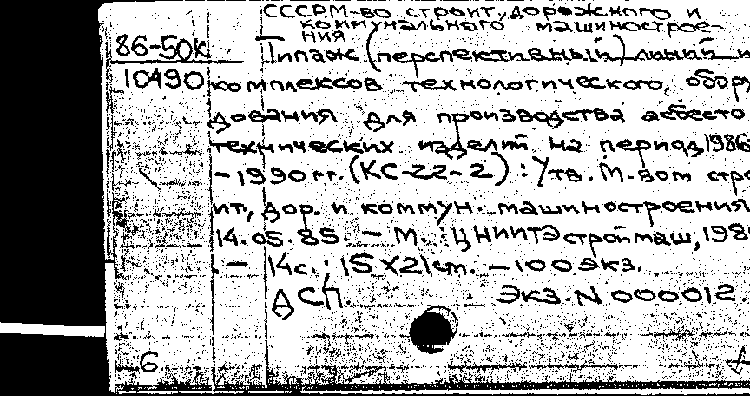 СССР М-во строит., дорожного и
коммунального машинострое-
ния
86-50к
Типаж (перспективный) линий и
10490
комплексов технологического обору
дования для производства асбесто
технических изделий на период 1986
-1990 гг. (КС-22-2): Утв. М-вом стро
ит., дор. и коммун. машиностроения
14.05.85. - М.: ЦНИИТЭстроймаш, 198
. - 14с.; 15х21см. - 100 экз.
ДСП. Экз. N 000012
6